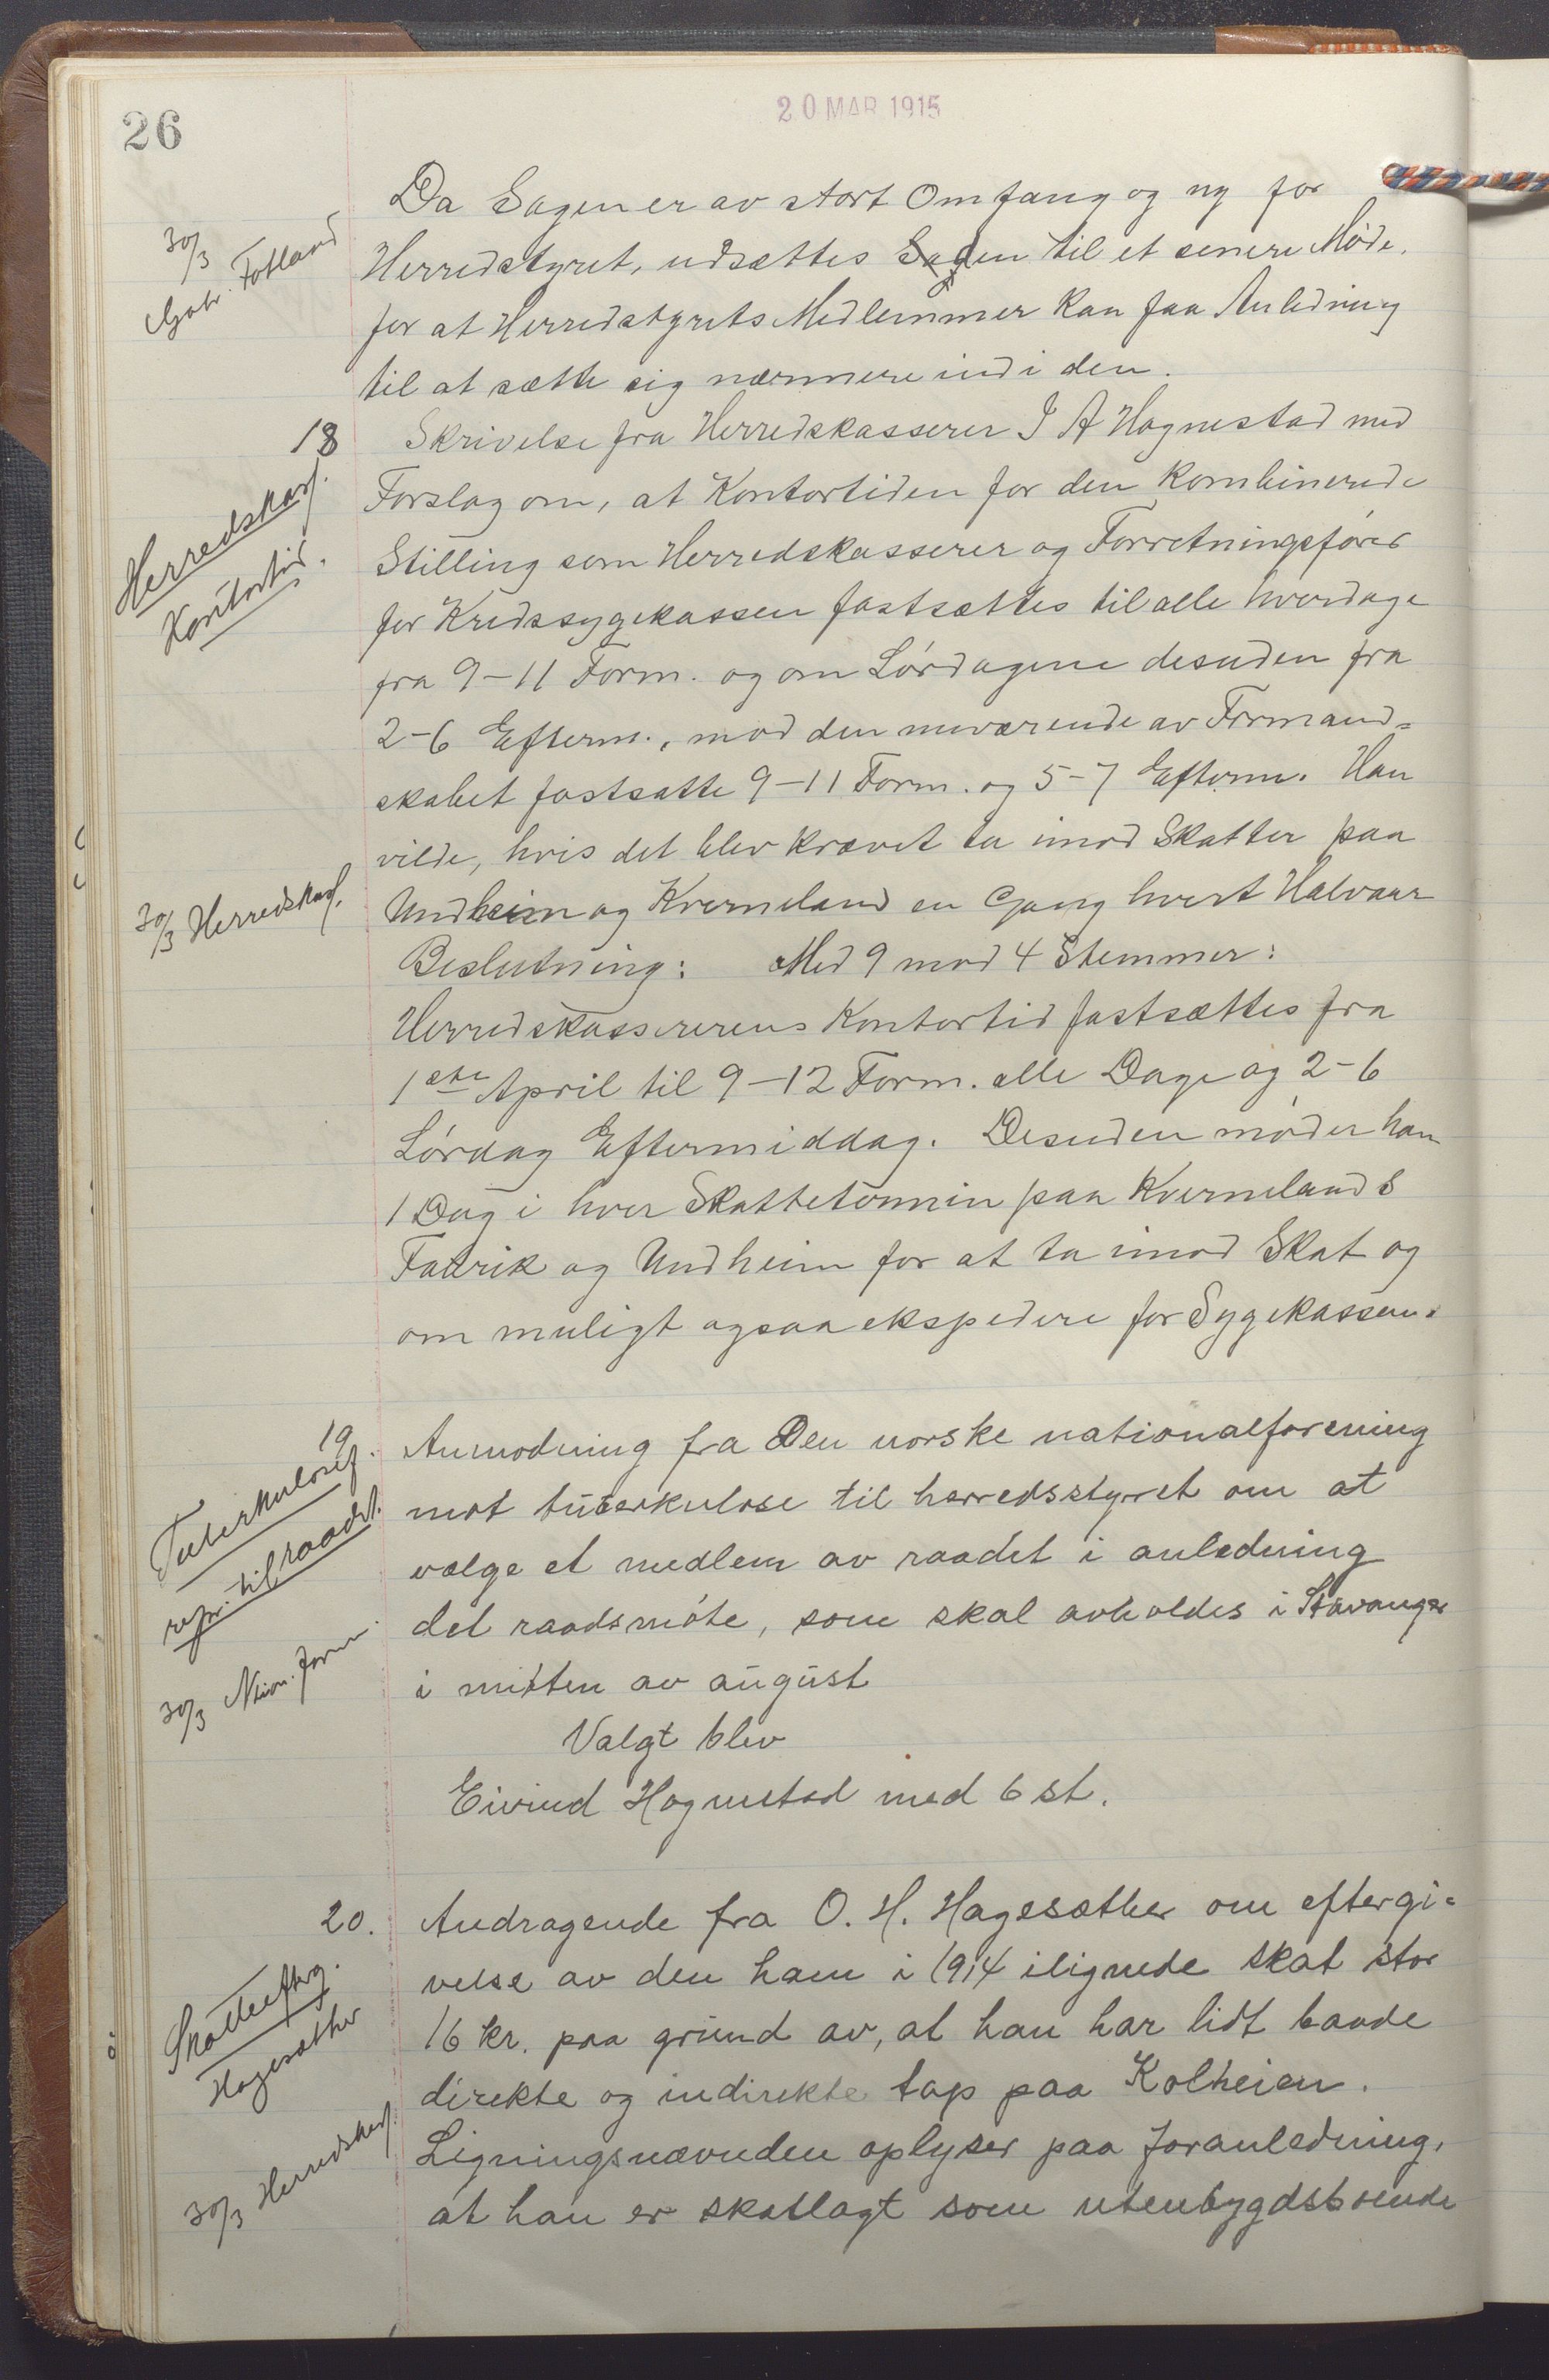 26
20 MAR 1915
Da Sagen er av stort Omfang og ny for
30/3
Gabr. Fotland
Herredstyret, udsættes Sagen til et senere Møde,
for at Herredstyrets Medlemmer kan faa Anledning
til at sætte sig nærmere ind i den.
18
Skrivelse fra Herredskasserer I A Hognestad med
Herredskass.
Kontortid.
Forslag om, at Kontortiden for den kombinerede
Stilling som Herredskasserer og Forretningsfører
for Kredssygekassen fastsættes til alle hverdage
fra 9-11 Form. og om Lørdagene desuden fra
2-6 Efterm., mod den nuværende av Formand=
skabet fastsatte 9-11 Form. og 5-7 Efterm. Han
vilde, hvis det blev krævet ta imod Skatter paa
30/3 Herredskass.
Undheim og Kverneland en Gang hvert Halvaar
Beslutning: Med 9 mod 4 Stemmer:
Herredskassererens Kontortid fastsættes fra
1ste April til 9-12 Form. alle Dage og 2-6
Lørdag Eftermiddag. Desuden møder han
1 Dag i hver Skattetermin paa Kvernelands
Fabrik og Undheim for at ta imod Skat og
om muligt ogsaa ekspedere for Sygekassen.
19.
Anmodning fra Den norske nationalforening
Tuberkulosef.
repr. til raadet.
mot tuberkulose til herredsstyret om at
vælge et medlem av raadet i anledning
det raadsmøte, som skal avholdes i Stavanger
30/3 Ntion. foren.
i mitten av august
Valgt blev
Eivind Hognestad med 6 st.
20.
Andragende fra O. H. Hagesæther om eftergi=
Skatteefterg.
Hagesæther
velse av den ham i 1914 ilignede skat stor
16 kr. paa grund av, at han har lidt baade
direkte og indirekte tap paa Kolheien.
30/3 Herredskass.
Ligningsnævnden oplyser paa foranledning,
at han er skatlagt som utenbygdsboende